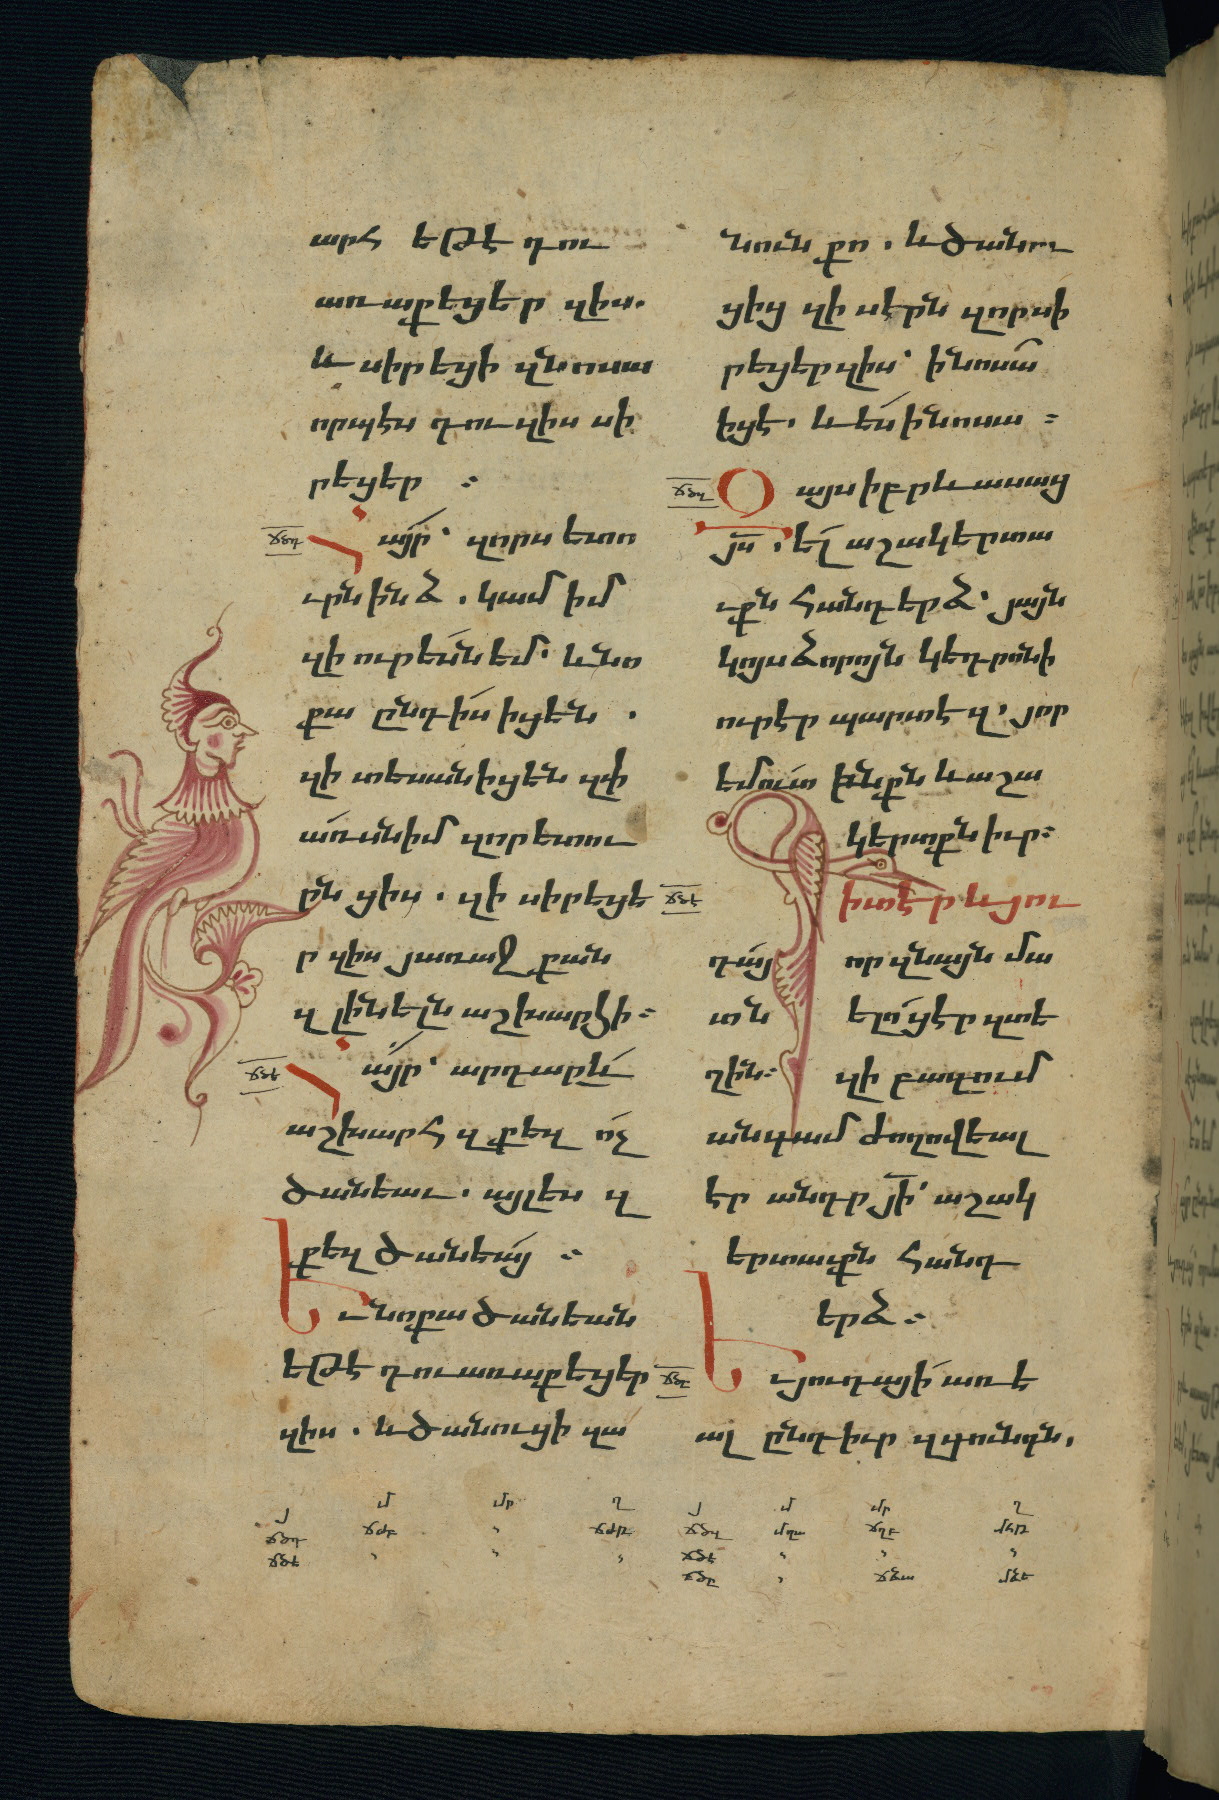 արհ եթէ դու
առաքեցեր զիս.
և սիրեցի զնոսա
որպէս դու զիս սի
րեցեր ։
ճծդ
Հա՛յր՝ զորս ետո
ւրն ինձ . կամ իմ
զի ուր ես՛ն եմ՝ և նո
քա ընդ ի՛ս իցեն .
զի տեսանիցեն զփ
առսն իմ զոր ետու
րն ցիս . զի սիրեցե
ր զիս յառաջ քան
զ լինելն աշխարհի ։
ճծե
Հա՛յր՝ արդար և՛
աշխարհ զքեզ ո՛չ
ծանեաւ . այլ ես զ
քեզ ծանեայ ։
Եւ նոքա ծանեան
եթէ դու առաքեցեր
զիս . և ծանուցի զա
նուն քո . և ծանու
ցից զի սէրն զոր սի
րեցեր զիս՝ ի նոսա
իցէ . և ես ի նոսա ։
ճծզ
Զայս իբրև ասաց
յս . ել աշակերտա
ւքն հանդերձ՝ յայն
կոյս ձորոյն կեդրոնի
ուր էր պարտէզ . յոր
եմուտ ինքն և աշա
կերտքն իւր ։
ճծէ
Գիտէր և յու
դայ որ զնայն մա
տն ելոց էր զտե
ղին ։ զի բազում
անգամ ժողովեալ
էր անդր յի՝ աշակ
երտաւքն հանդ
երձ ։
ճծը
Եւ յուդայի առե
ալ ընդ իւր զգունդն .
յ մ մր ղ յ մ մր ղ
ճծդ ճժբ , ճժթ ճծզ մղա մհթ
ճծե , , , ճծէ , , ,
ճծը , ճձա մձե